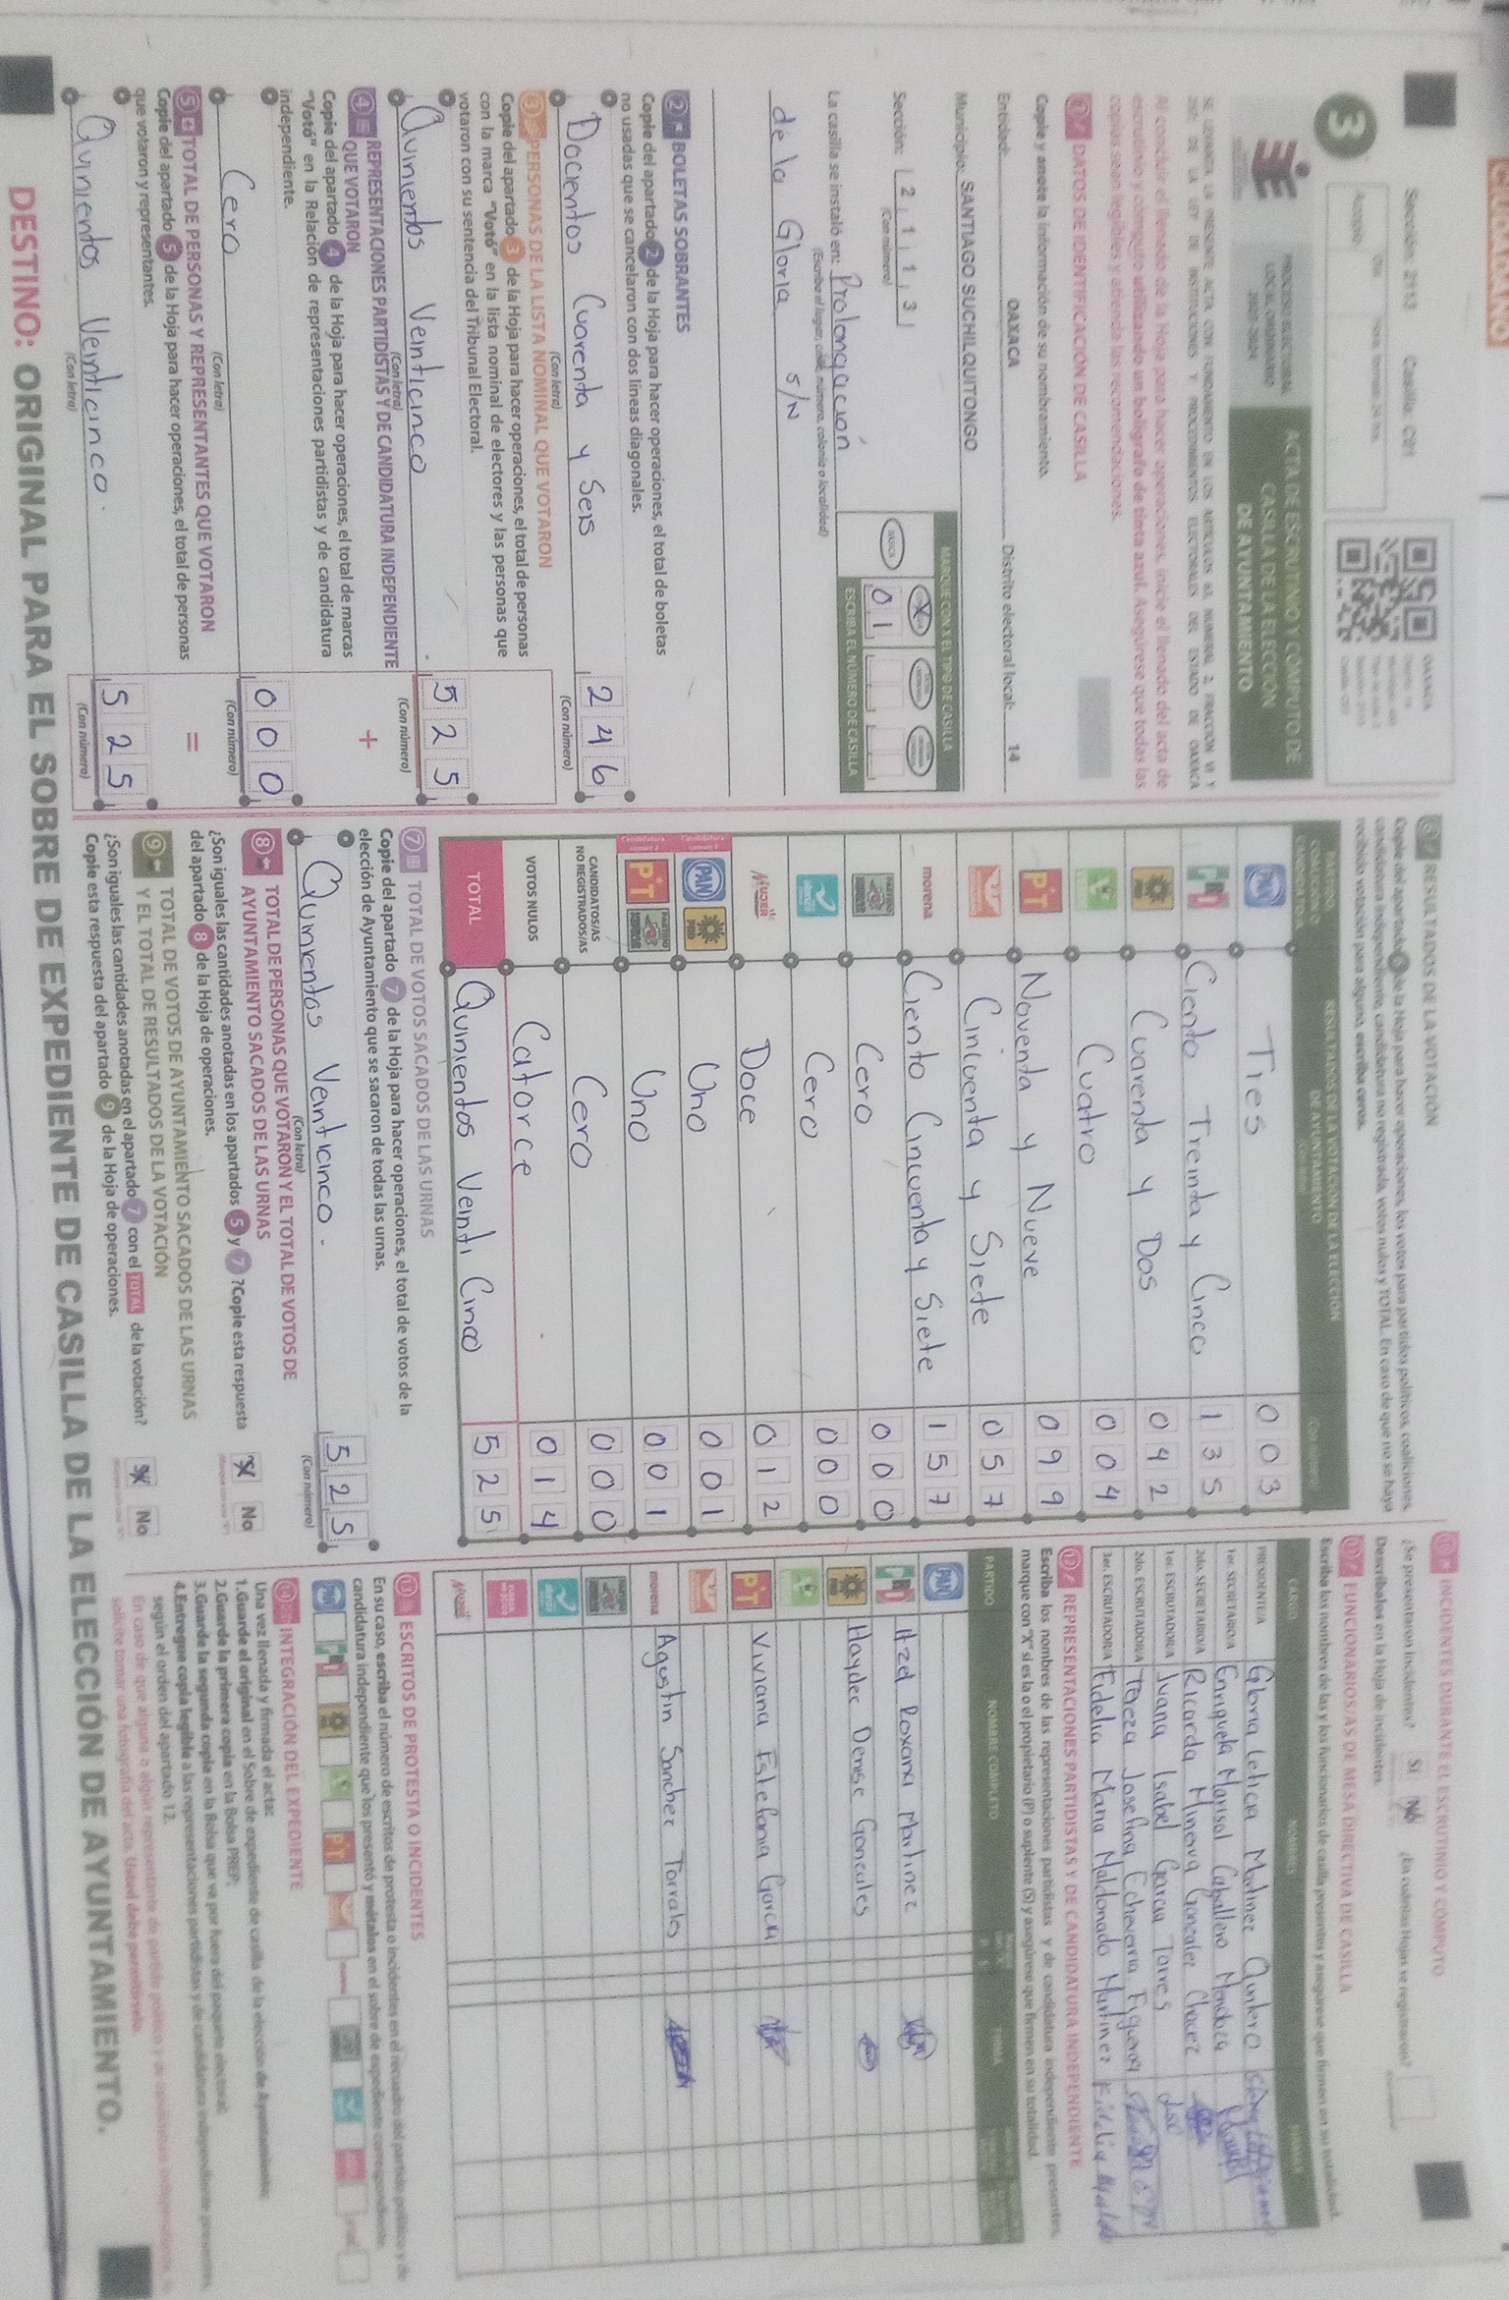 CIUDADANO
Sección: 2113 Casilla: C01
3
PROCESO ELECTORAL
LOCAL ORDINARIO
2023-2024
ACTA DE ESCRUTINIO Y CÓMPUTO DE
CASILLA DE LA ELECCIÓN
DE AYUNTAMIENTO
SE LEVANTA LA PRESENTE ACTA CON FUNDAMENTO EN LOS ARTÍCULOS
DE LA LEY DE INSTITUCIONES Y PROCEDIMIENTOS ELECTORALES DEL ESTADO DE OAXACA
Al concluir el llenado de la Hoja para hacer operaciones, inicie el llenado del acta de
escrutinio y cómputo utilizando un bolígrafo de tinta azul. Asegúrese que todas las
copias sean legibles y atienda las recomendaciones.
1 DATOS DE IDENTIFICACIÓN DE CASILLA
Copie y anote la información de su nombramiento.
Entidad: OAXACA Distrito electoral local: 14
Municipio: SANTIAGO SUCHILQUITONGO
Sección: 2 1 1 3
(Con número)
MARQUE CON X EL TIPO DE CASILLA
BÁSICA X
ESCRIBA EL NÚMERO DE CASILLA
0 1
La casilla se instaló en: Prolongación
(Escriba el lugar, calle, número, colonia o localidad)
de la Gloria S/N
2 BOLETAS SOBRANTES
Copie del apartado 2 de la Hoja para hacer operaciones, el total de boletas
no usadas que se cancelaron con dos líneas diagonales.
Docientos Cuarenta y Seis 2 4 6
(Con letra) (Con número)
3 PERSONAS DE LA LISTA NOMINAL QUE VOTARON
Copie del apartado 3 de la Hoja para hacer operaciones, el total de personas
con la marca "Votó" en la lista nominal de electores y las personas que
votaron con su sentencia del Tribunal Electoral.
Quinientos Veinticinco 5 2 5
(Con letra) (Con número)
4 REPRESENTACIONES PARTIDISTAS Y DE CANDIDATURA INDEPENDIENTE
QUE VOTARON
+
Copie del apartado 4 de la Hoja para hacer operaciones, el total de marcas
"Votó" en la Relación de representaciones partidistas y de candidatura
independiente.
Cero 0 0 0
(Con letra) (Con número)
5 TOTAL DE PERSONAS Y REPRESENTANTES QUE VOTARON
=
Copie del apartado 5 de la Hoja para hacer operaciones, el total de personas
que votaron y representantes.
Quinientos Veinticinco. 5 2 5
(Con letra) (Con número)
6 RESULTADOS DE LA VOTACIÓN
Copie del apartado 6 de la Hoja para hacer operaciones, los votos para partidos políticos, coaliciones,
candidatura independiente, candidatura no registrada, votos nulos y TOTAL. En caso de que no se haya
recibido votación para alguno, escriba ceros.
RESULTADOS DE LA VOTACIÓN DE LA ELECCIÓN
DE AYUNTAMIENTO
PAN Tres 003
PRI Ciento Treinta y Cinco 135
PRD Cuarenta y Dos 042
Cuatro 004
PT Noventa y Nueve 099
Cincuenta y Siete 057
morena Ciento Cincuenta y Siete 157
Cero 000
Cero 000
MUJER Doce 012
PAN PRD Uno 001
PT Uno 001
CANDIDATOS/AS
NO REGISTRADOS/AS Cero 000
VOTOS NULOS Catorce 014
TOTAL Quinientos Veinti Cinco 525
7 TOTAL DE VOTOS SACADOS DE LAS URNAS
Copie del apartado 7 de la Hoja para hacer operaciones, el total de votos de la
elección de Ayuntamiento que se sacaron de todas las urnas.
Quinientos Veinticinco. 5 2 5
(Con letra) (Con número)
8 TOTAL DE PERSONAS QUE VOTARON Y EL TOTAL DE VOTOS DE
AYUNTAMIENTO SACADOS DE LAS URNAS
¿Son iguales las cantidades anotadas en los apartados 5 y 7? Copie esta respuesta
del apartado 8 de la Hoja de operaciones.
X No
9 TOTAL DE VOTOS DE AYUNTAMIENTO SACADOS DE LAS URNAS
Y EL TOTAL DE RESULTADOS DE LA VOTACIÓN
¿Son iguales las cantidades anotadas en el apartado 7 con el TOTAL de la votación?
Copie esta respuesta del apartado 9 de la Hoja de operaciones.
X No
10 INCIDENTES DURANTE EL ESCRUTINIO Y CÓMPUTO
¿Se presentaron incidentes? Sí No ¿En cuántas Hojas se registraron?
Descríbalos en la Hoja de incidentes.
11 FUNCIONARIOS/AS DE MESA DIRECTIVA DE CASILLA
Escriba los nombres de las y los funcionarios de casilla presentes y asegúrese que firmen en su totalidad.
CARGO NOMBRES FIRMAS
PRESIDENTE/A Gloria Leticia Martinez Quintero
1er. SECRETARIO/A Enriqueta Marisol Caballero Mendoza
2do. SECRETARIO/A Ricarda Minerva Gonzalez Chavez
1er. ESCRUTADOR/A Juana Isabel Garcia Torres
2do. ESCRUTADOR/A Tereza Josefina Echeverria Figueroa
3er. ESCRUTADOR/A Fidelia Maria Maldonado Martinez
12 REPRESENTACIONES PARTIDISTAS Y DE CANDIDATURA INDEPENDIENTE
Escriba los nombres de las representaciones partidistas y de candidatura independiente presentes,
marque con "X" si es la o el propietario (P) o suplente (S) y asegúrese que firmen en su totalidad.
PARTIDO NOMBRE COMPLETO FIRMA
PAN
PRI Itzel Roxana Martinez
PRD Haydee Denise Gonzales
PT Viviana Estefania Garcia
morena Agustin Sanchez Torrales
13 ESCRITOS DE PROTESTA O INCIDENTES
En su caso, escriba el número de escritos de protesta o incidentes en el recuadro del partido político y de
candidatura independiente que los presentó y métalos en el sobre de expediente correspondiente.
14 INTEGRACIÓN DEL EXPEDIENTE
Una vez llenada y firmada el acta:
1. Guarde el original en el Sobre de expediente de casilla de la elección de Ayuntamiento.
2. Guarde la primera copia en la Bolsa PREP.
3. Guarde la segunda copia en la Bolsa que va por fuera del paquete electoral.
4. Entregue copia legible a las representaciones partidistas y de candidatura independiente presentes,
según el orden del apartado 12.
DESTINO: ORIGINAL PARA EL SOBRE DE EXPEDIENTE DE CASILLA DE LA ELECCIÓN DE AYUNTAMIENTO.